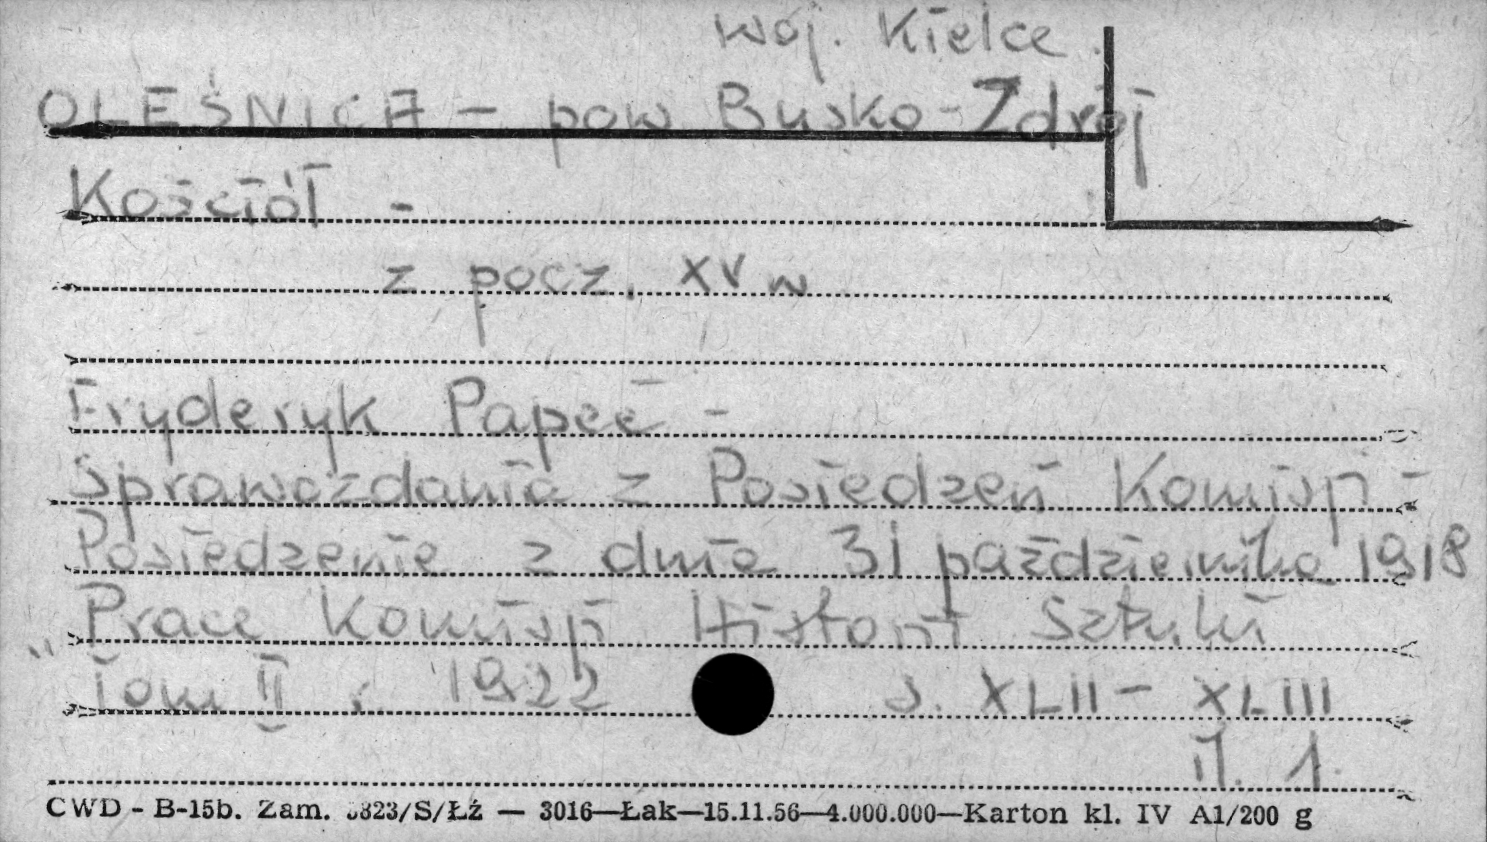 woj. Kielce.
OLEŚNICA - pow Busko-Zdrój
Kościół -
z pocz. XV w
Fryderyk Papeé -
Sprawozdania z Posiedzeń Komisji -
Posiedzenie z dnia 31 października 1918
"Prace Komisji Historii Sztuki
Tom II r. 1922 s. XLII - XLIII
il. 1.
CWD - B-15b. Zam. 3823/S/Łź — 3016—Łak—15.11.56—4.000.000—Karton kl. IV A1/200 g